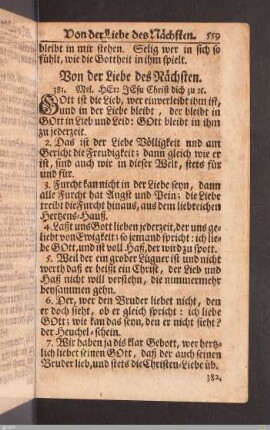 Von der Liebe des Nächsten. 559
bleibt in mir stehen. Selig wer in sich so
fühlt, wie die Gottheit in ihm spielt.
Von der Liebe des Nächsten.
381. Mel. HErr JEsu Christ dich zu ꝛc.
GOtt ist die Lieb, wer einverleibt ihm ist,
und in der Liebe bleibt, der bleibt in
GOtt in Lieb und Leid: GOtt bleibt in ihm
zu jederzeit.
2. Das ist der Liebe Völligkeit und am
Gericht die Freudigkeit; dann gleich wie er
ist, sind auch wir in dieser Welt, stets für
und für.
3. Furcht kan nicht in der Liebe seyn, dann
alle Furcht hat Angst und Pein; die Liebe
treibt die Furcht hinaus, aus dem liebreichen
Hertzens-Hauß.
4. Laßt uns Gott lieben jederzeit, der uns ge-
liebt von Ewigkeit; so jemand spricht: ich lie-
be Gott, und ist voll Haß, der wird zu spott.
5. Weil der ein grober Lügner ist und nicht
werth daß er heißt ein Christ, der Lieb und
Haß nicht will verstehn, die nimmermehr
beysammen gehn.
6. Der, wer den Bruder liebet nicht, den
er doch sieht, ob er gleich spricht: ich liebe
GOtt; wie kan das seyn, den er nicht sieht?
der Heuchel-schein.
7. Wir haben ja dis klar Gebott, wer hertz-
lich liebet seinen GOtt, daß der auch seinen
Bruder lieb, und stets die Christen-Liebe üb.
382.